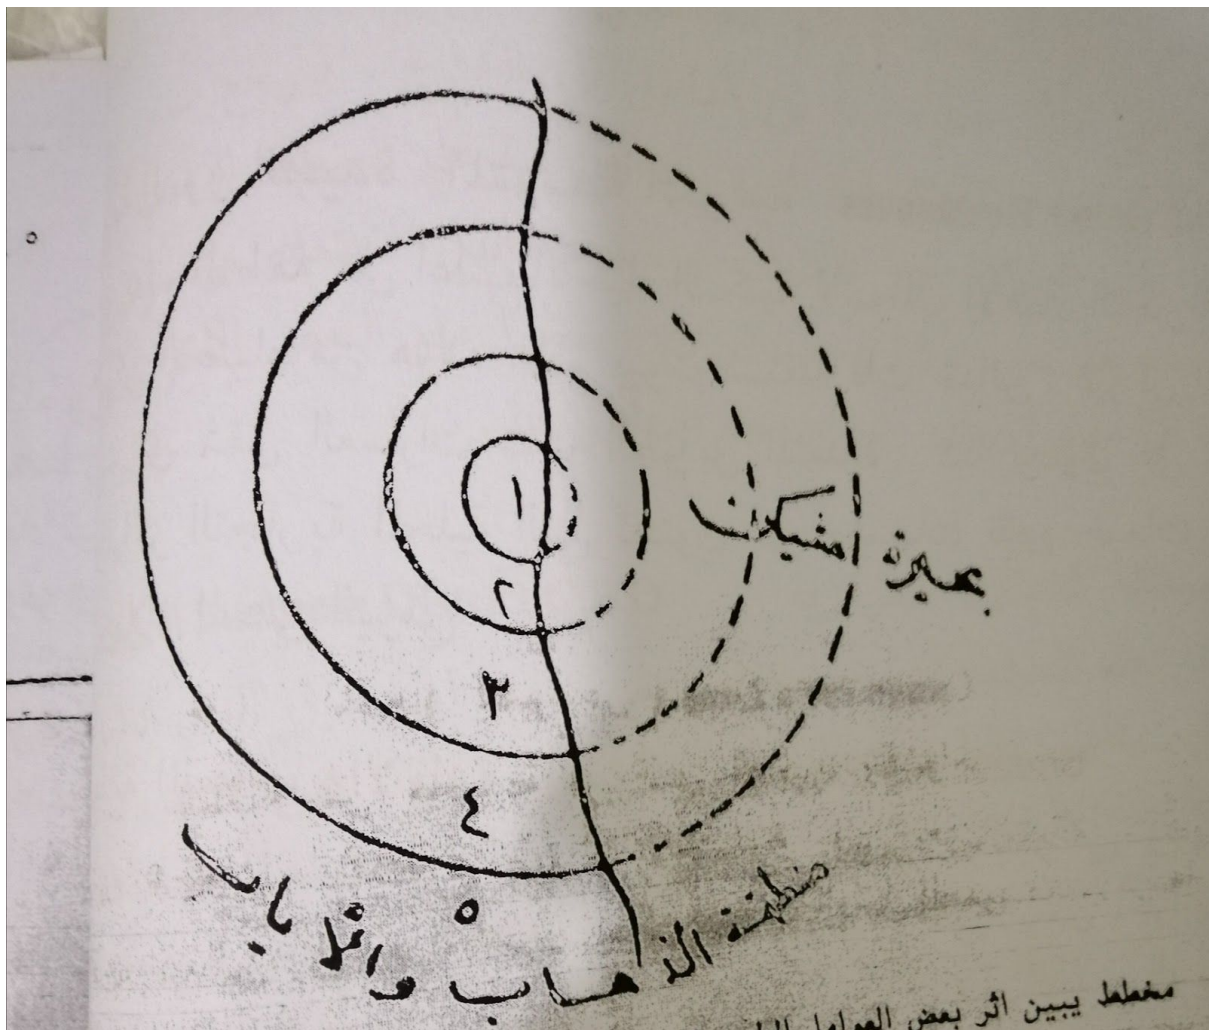 ١
بحيرة مشيكن
٢
٣
٤
٥
منطقة الذهاب والاياب
مخطط يبين اثر بعض العوامل